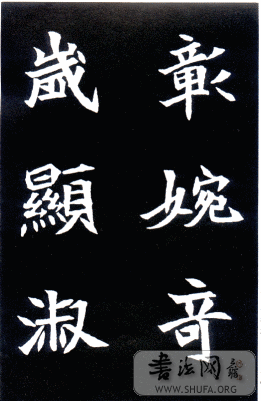 彰婉奇
歲顯淑
書法网
WWW.SHUFA.ORG